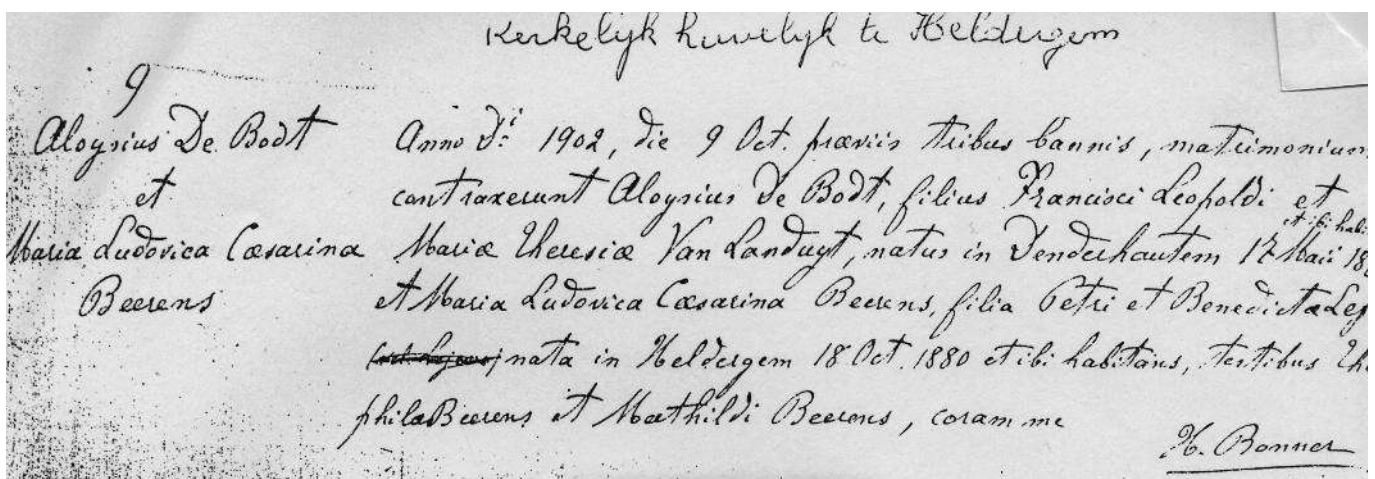 Kerkelijk huwelijk te Heldergem
9
Aloysius De Bodt
et
Maria Ludovica Cæsarina
Beerens
Anno Di 1902, die 9 Oct. præviis tribus bannis, matrimonium
contraxerunt Aloysius De Bodt, filius Francisci Leopoldi et
et ibi habi
Mariæ Theresiæ Van Landuyt, natus in Denderhautem 17 Maii 18
et Maria Ludovica Cæsarina Beerens, filia Petri et Benedictæ
nata in Heldergem 18 Oct. 1880 et ibi habitans, testibus
phila Beerens et Mathildi Beerens, coram me
H. Bonner